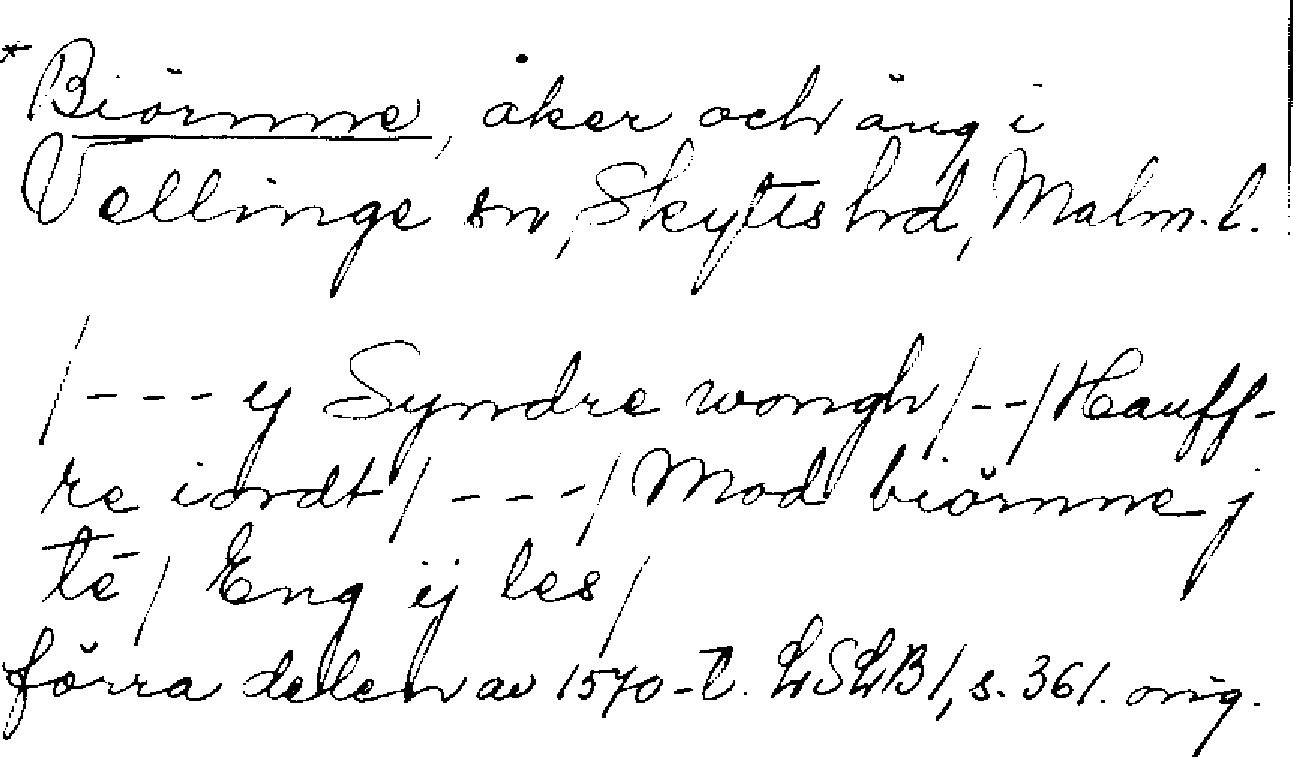 * Biörnne, åker och äng i
Vellinge sn, Skytts hd, Malm. l.
/---y Syndre wongh/--/Hauff-
re iordt/---/Mod biörnne j
tē/ Eng ij les/
förra delen av 1570-t. LSLB1, s. 361. orig.